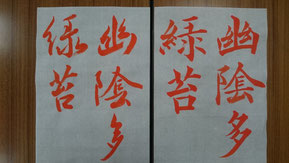 幽陰多
緑苔
幽陰多
緑苔